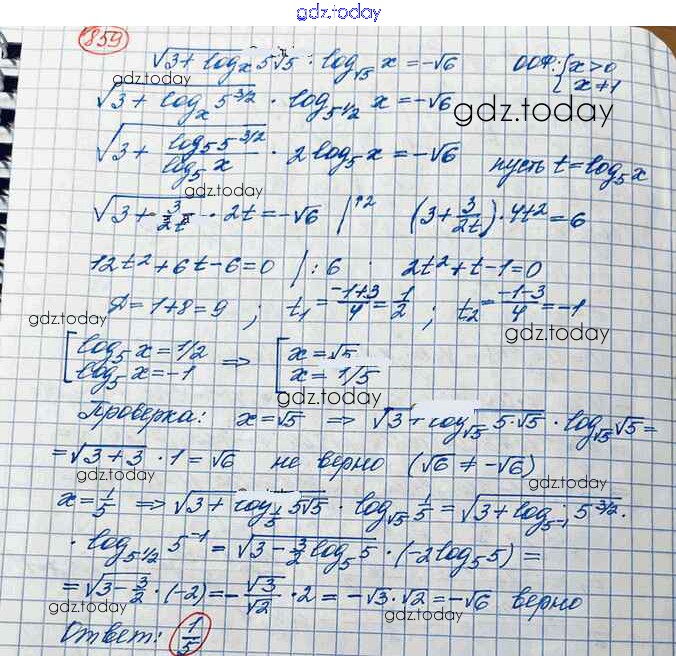 gdz.today
859
√3+logₓ5√5 · log_√5 x = -√6   ООФ: {x>0
{x≠1
√3+logₓ5^3/2 · log_5^1/2 x = -√6
gdz.today
√3+log₅5^3/2/log₅x · 2log₅x = -√6   пусть t=log₅x
gdz.today
√3+3/2t · 2t = -√6 |↑2   (3+3/2t)·4t²=6
12t²+6t-6=0 |:6   2t²+t-1=0
Д=1+8=9 ; t₁=-1+3/4=1/2 ; t₂=-1-3/4=-1
gdz.today
gdz.today
[log₅x=1/2 ⇒ [x=√5
log₅x=-1   x=1/5
gdz.today
Проверка: x=√5 ⇒ √3+log_√5 5·√5 · log_√5 √5 =
=√3+3 · 1=√6 не верно (√6≠-√6)
gdz.today
gdz.today
x=1/5 ⇒ √3+log_1/5 5√5 · log_√5 1/5 = √3+log_5^-1 5^3/2 ·
· log_5^1/2 5^-1 = √3-3/2log₅5 · (-2log₅5) =
=√3-3/2 · (-2) = -√3/√2 · 2 = -√3·√2 = -√6 верно
gdz.today
gdz.today
Ответ: 1/5